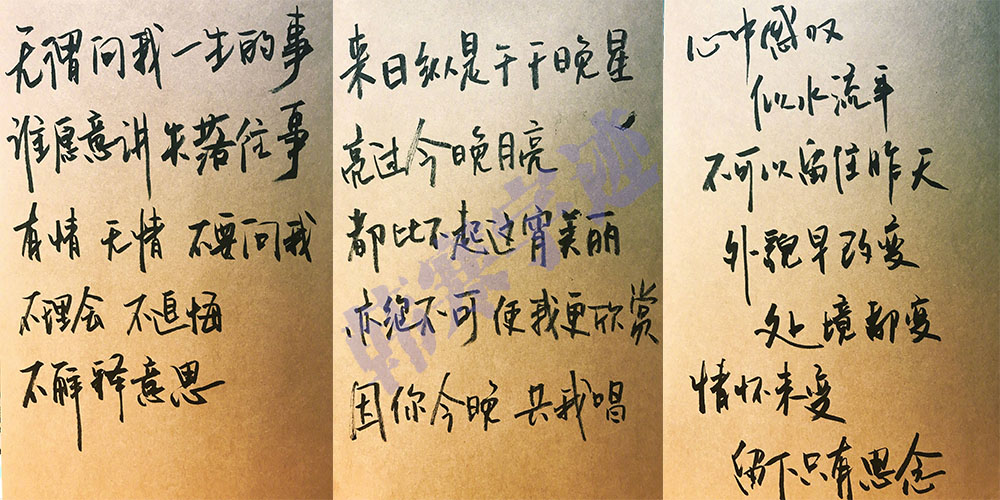 无谓问我一生的事
谁愿意讲失落往事
有情 无情 不要问我
不理会 不追悔
不解释意思
来日纵是千千晚星
亮过今晚月亮
都比不起这宵美丽
亦绝不可使我更欣赏
因你今晚共我唱
心中感叹
似水流年
不可以留住昨天
外貌早改变
处境都变
情怀未变
留下只有思念